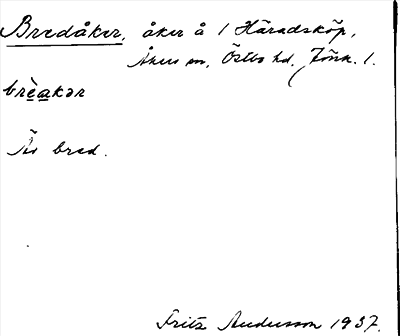 Bredåker, åker å 1 Häradsköp,
Åkers sn, Östbo hd, Jönk. l.
brèakər
Är bred.
Fritz Andersson 1937.